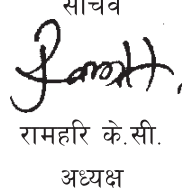 सचिव
रामहरि के.सी.
अध्यक्ष